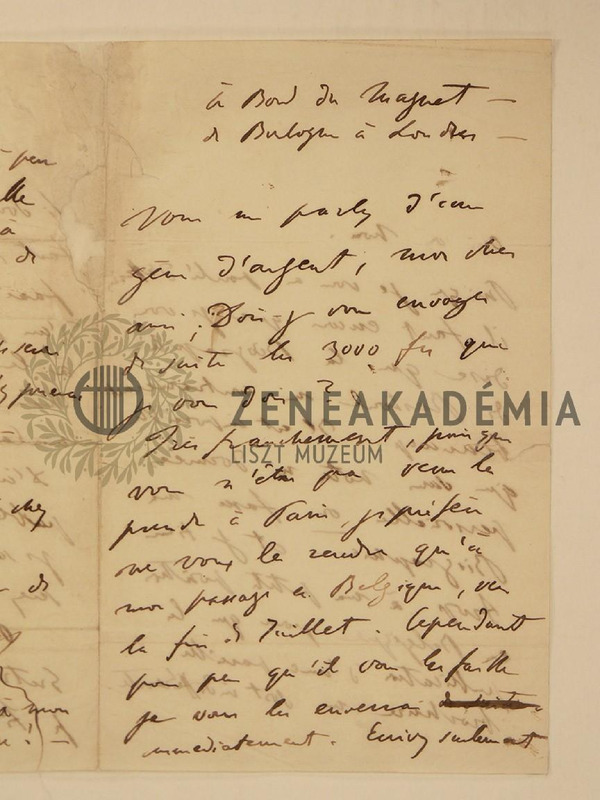 à Bord du Magnet —
de Bulogne à Londres —
Vous me parlez d'être
gêné d'argent, mon cher
ami; Dois-je vous envoyer
de suite les 3000 frs que
je vous dois?
Très franchement, puisque
vous n'êtes pas venu les
prendre à Paris, je préfère
ne vous les rendre qu'à
mon passage en Belgique, vers
la fin de Juillet. Cependant
pour peu qu'il vous les faille
je vous les enverrai
immédiatement. Ecrivez seulement
à peu
de
chez
de
à mon
ZENEAKADÉMIA
LISZT MÚZEUM